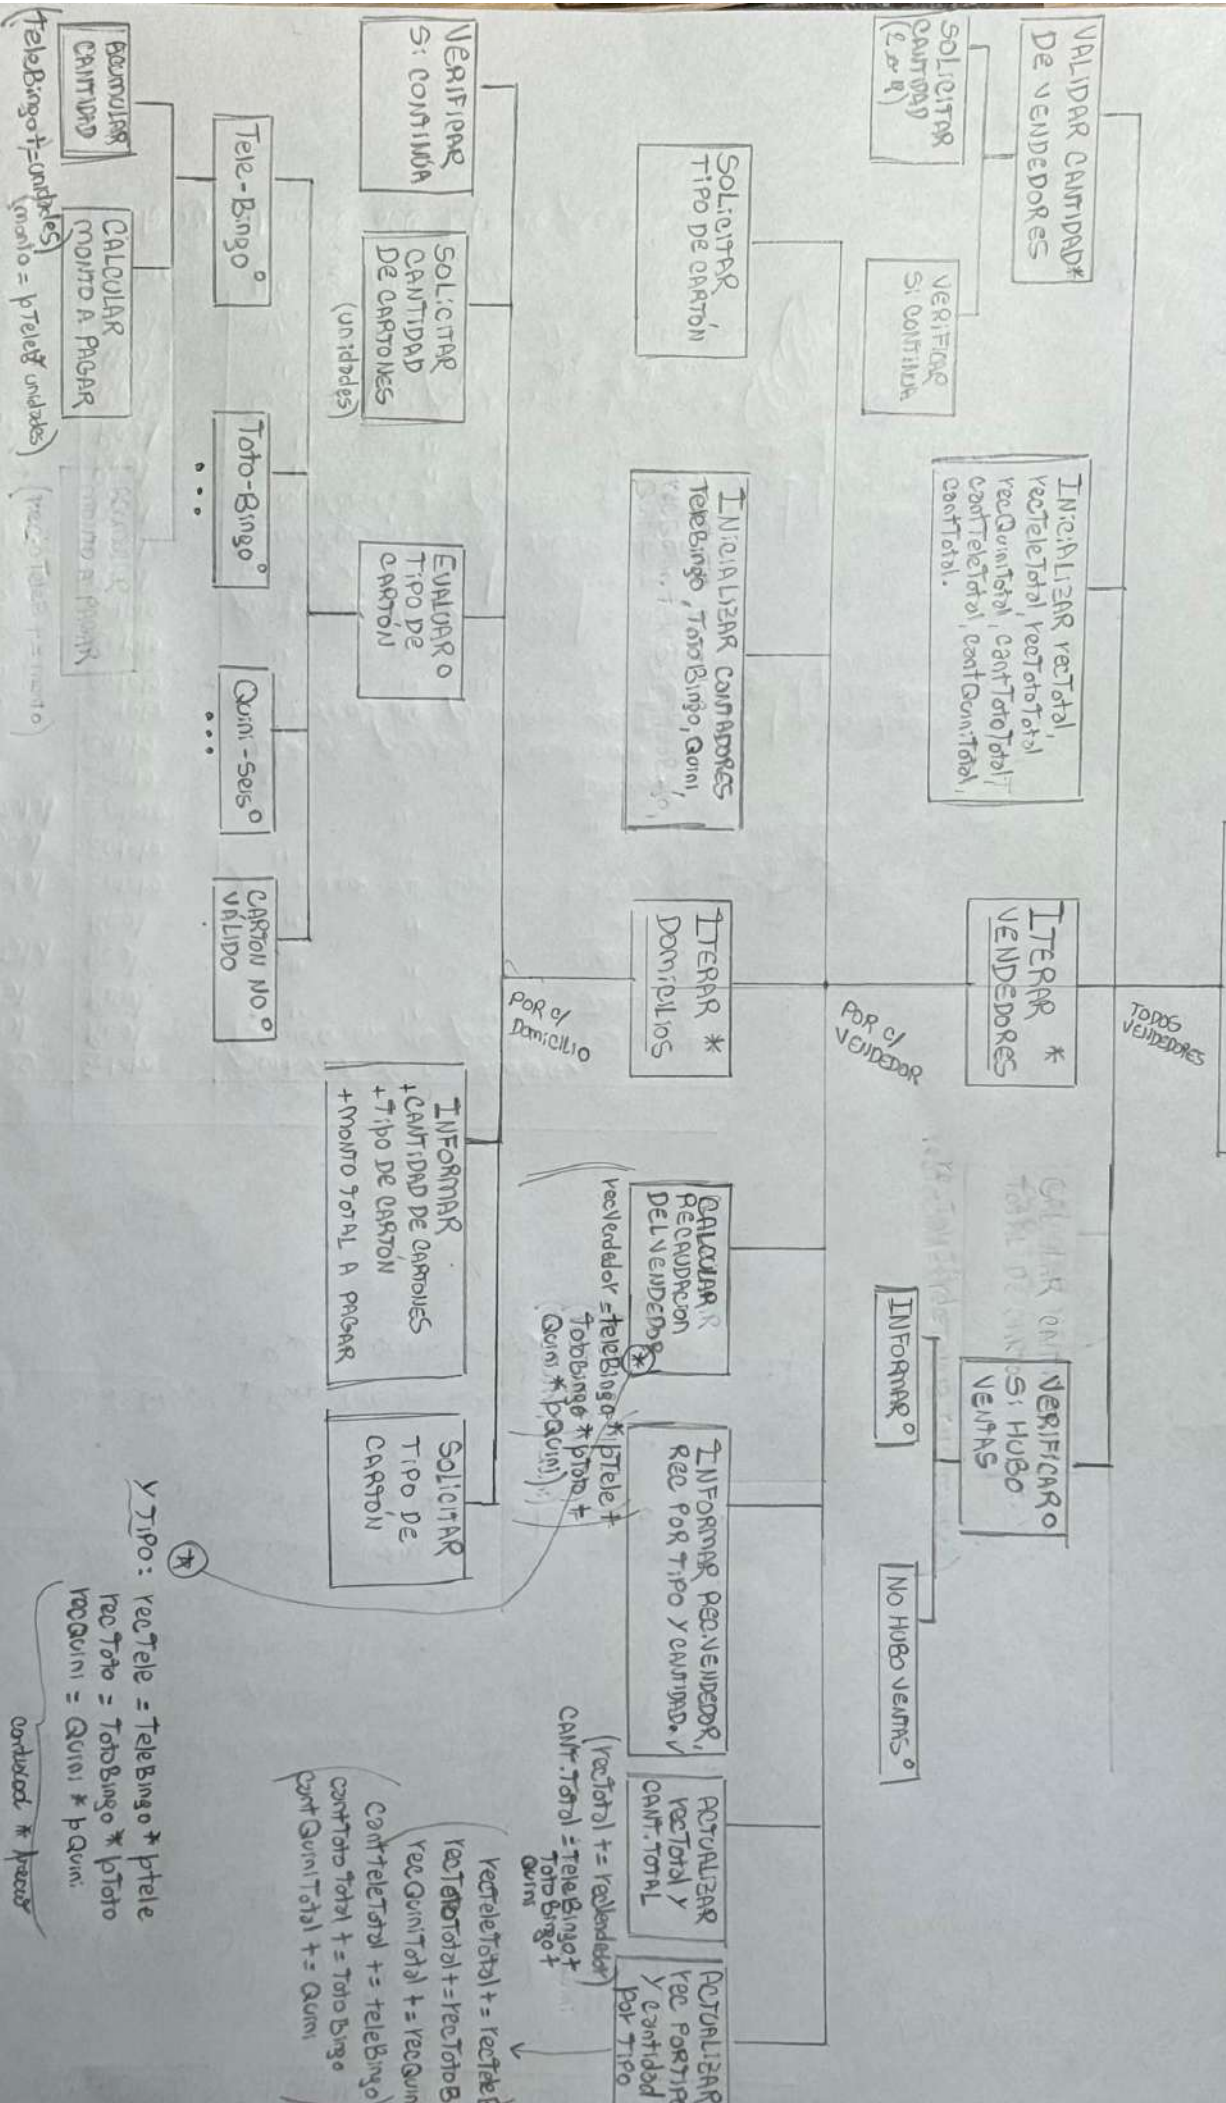 TODOS
VENDEDORES
VALIDAR CANTIDAD*
DE VENDEDORES
SOLICITAR
CANTIDAD
VERIFICAR
SI CONTINÚA
INICIALIZAR recTotal,
recTeleTotal, recTotoTotal
recQuiniTotal, cantTotoTotal,
cantTeleTotal, cantQuiniTotal,
cantTotal.
ITERAR *
VENDEDORES
VERIFICAR O
SI HUBO
VENTAS
INFORMAR °
NO HUBO VENTAS °
POR C/
VENDEDOR
SOLICITAR
TIPO DE CARTÓN
INICIALIZAR CONTADORES
TeleBingo, TotoBingo, Quini,
ITERAR *
DOMICILIOS
CALCULAR
RECAUDACION
DEL VENDEDOR
recVendedor = teleBingo * pTele +
TotoBingo * pToto +
Quini * pQuini
INFORMAR REC. VENDEDOR,
REC POR TIPO Y CANTIDAD. ✓
ACTUALIZAR
recTotal y
CANT. TOTAL
(recTotal += recVendedor)
CANT. Total = TeleBingo +
TotoBingo +
Quini
ACTUALIZAR
rec POR TIPO
y cantidad
por TIPO
recTeleTotal +=
recTotoTotal += recTotoB
recQuiniTotal += recQuin
cantTeleTotal += teleBingo
cantTotoTotal += TotoBingo
cantQuiniTotal += Quini
POR C/
DOMICILIO
VERIFICAR
SI CONTINÚA
SOLICITAR
CANTIDAD
DE CARTONES
(unidades)
EVALUAR O
TIPO DE
CARTÓN
INFORMAR
+ CANTIDAD DE CARTONES
+ TIPO DE CARTÓN
+ MONTO TOTAL A PAGAR
SOLICITAR
TIPO DE
CARTÓN
Tele-Bingo °
Toto-Bingo °
...
Quini-seis °
...
CARTON NO °
VÁLIDO
ACUMULAR
CANTIDAD
CALCULAR
MONTO A PAGAR
(TeleBingo += unidades)
(monto = pTele * unidades)
*
Y TIPO: recTele = TeleBingo * ptele
recToto = TotoBingo * pToto
recQuini = Quini * pQuini
cantidad * precio